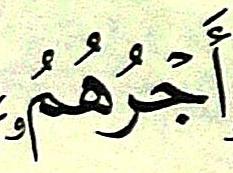 أَجْرُهُمُ